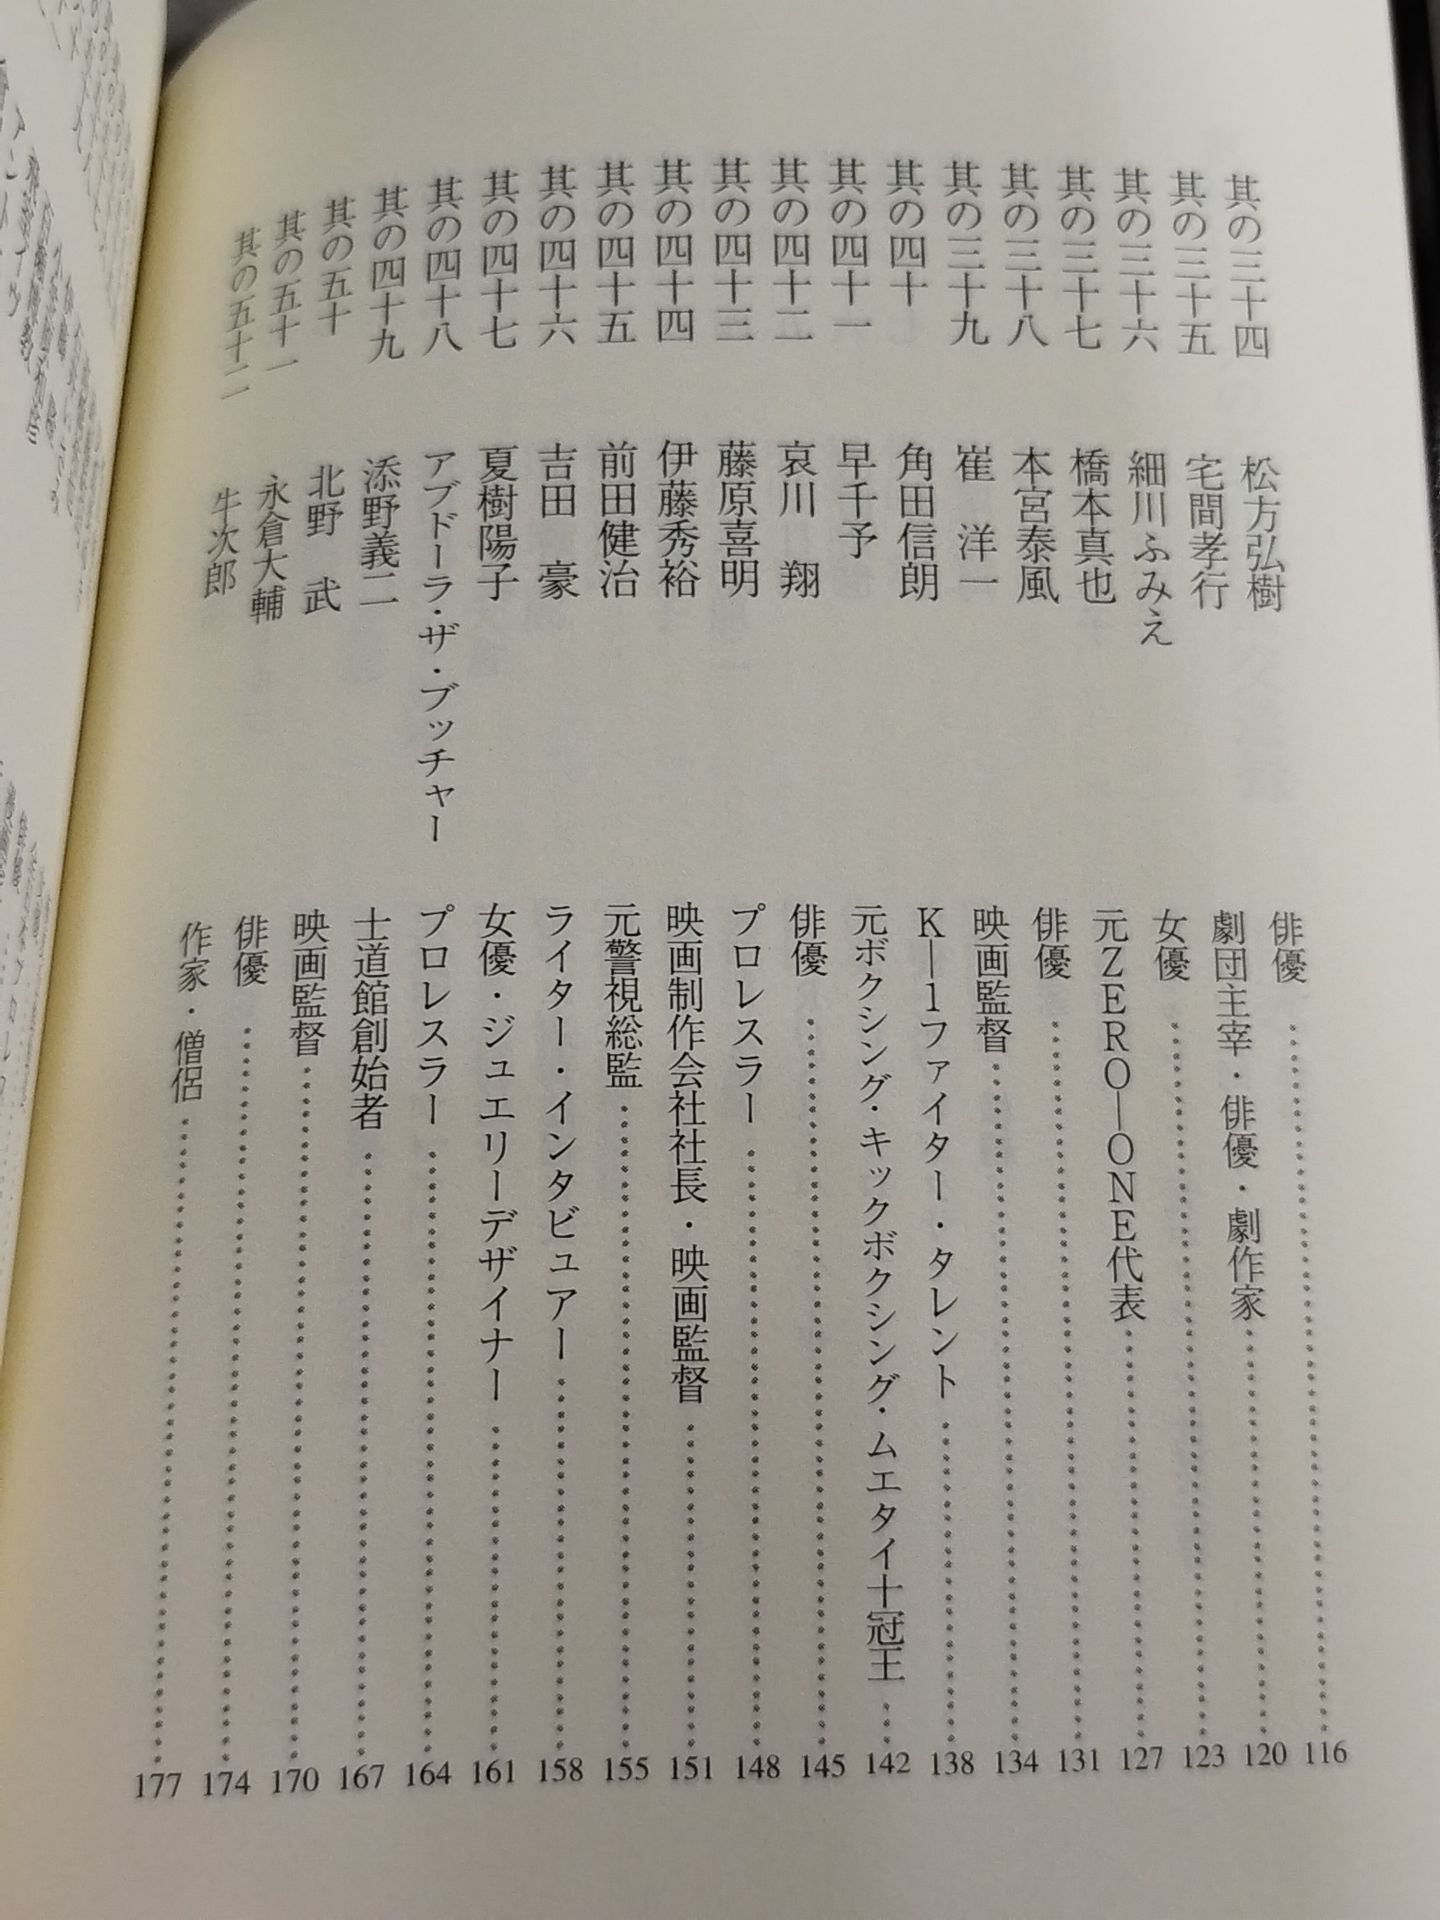 其の三十四　松方弘樹　俳優 116
其の三十五　宅間孝行　劇団主宰・俳優・劇作家 120
其の三十六　細川ふみえ　女優 123
其の三十七　橋本真也　元ZERO―ONE代表 127
其の三十八　本宮泰風　俳優 131
其の三十九　崔　洋一　映画監督 134
其の四十　角田信朗　K―1ファイター・タレント 138
其の四十一　早千予　元ボクシング・キックボクシング・ムエタイ十冠王 142
其の四十二　哀川　翔　俳優 145
其の四十三　藤原喜明　プロレスラー 148
其の四十四　伊藤秀裕　映画制作会社社長・映画監督 151
其の四十五　前田健治　元警視総監 155
其の四十六　吉田　豪　ライター・インタビュアー 158
其の四十七　夏樹陽子　女優・ジュエリーデザイナー 161
其の四十八　アブドーラ・ザ・ブッチャー　プロレスラー 164
其の四十九　添野義二　士道館創始者 167
其の五十　北野　武　映画監督 170
其の五十一　永倉大輔　俳優 174
其の五十二　牛次郎　作家・僧侶 177